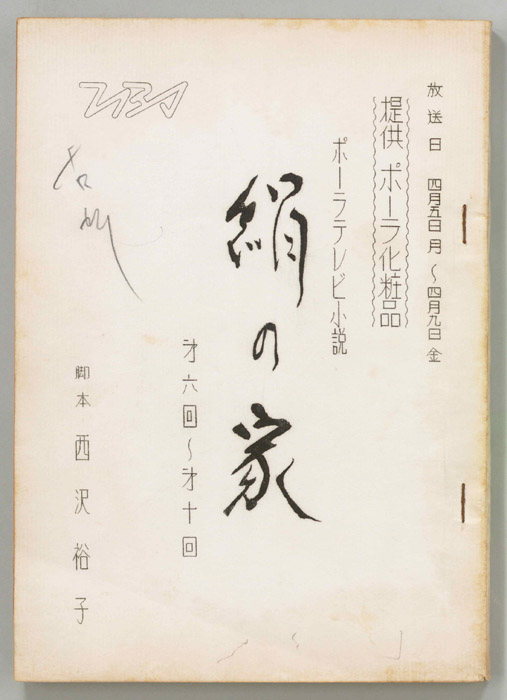 放送日 四月五日月～四月九日金
提供 ポーラ化粧品
ポーラテレビ小説
絹の家
才六回～才十回
脚本 西沢裕子
TBS